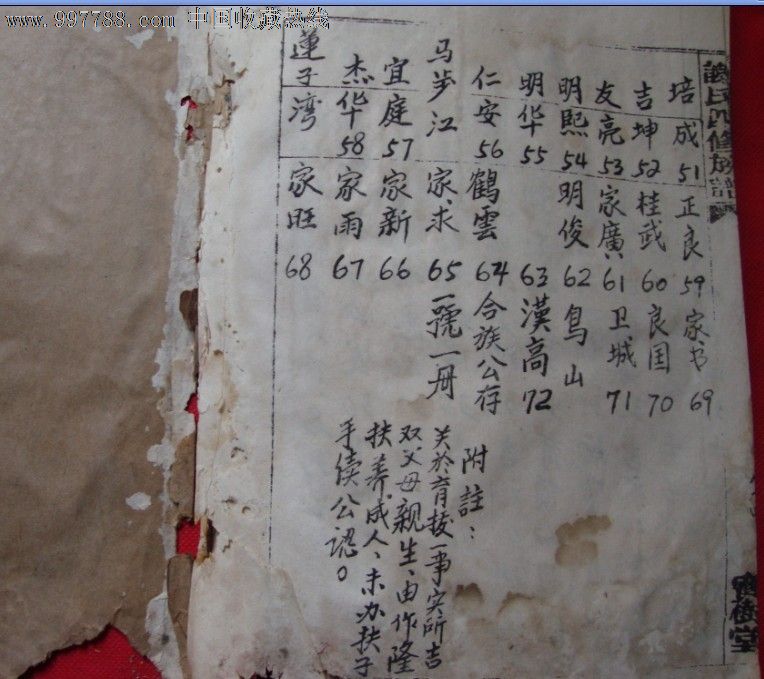 www.997788.com 中国收藏热线
培成51正良59家书69
吉坤52桂武60良国70
友亮53家廣61卫城71
明熙54明俊62鳥山
明华55 63漢高72
仁安56鶴雲64合族公存
马步江 家求65一號一册
宜庭57家新66
杰华58家雨67
蓮子湾 家旺68
附註：
关於育 一事实所吉
双父母親生、由作隆
扶养成人、未办扶子
手续公認。
氏四修族譜
堂